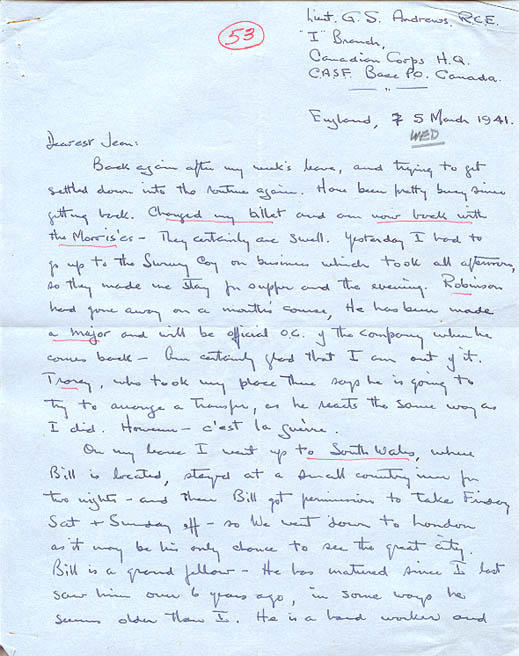 53
Lieut. G. S. Andrews, RCE.
"I" Branch,
Canadian Corps H.Q.
CASF. Base P.O. Canada.
England, 5 March 1941.
WED
Dearest Jean:
Back again after my week's leave, and trying to get
settled down into the routine again. Have been pretty busy since
getting back. Changed my billet and am now back with
the Morris'es – They certainly are swell. Yesterday I had to
go up to the Survey Coy on business which took all afternoon,
so they made me stay for supper and the evening. Robinson
had gone away on a months course, He has been made
a major and will be official O.C. of the company when he
comes back – Am certainly glad that I am out of it.
who took my place there says he is going to
try to arrange a transfer, as he reacts the same way as
I did. However – c'est la guèrre.
On my leave I went up to South Wales, where
Bill is located, stayed at a small country inn for
two nights – and then Bill got permission to take Friday
Sat + Sunday off – so We went down to London
as it may be his only chance to see the great city.
Bill is a grand fellow – He has matured since I last
saw him over 6 years ago, in some ways he
seems older than I. He is a hard worker and